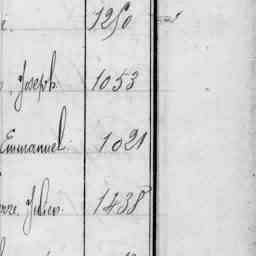 1250
, Joseph 1053
Emmanuel 1021
Julien 1438